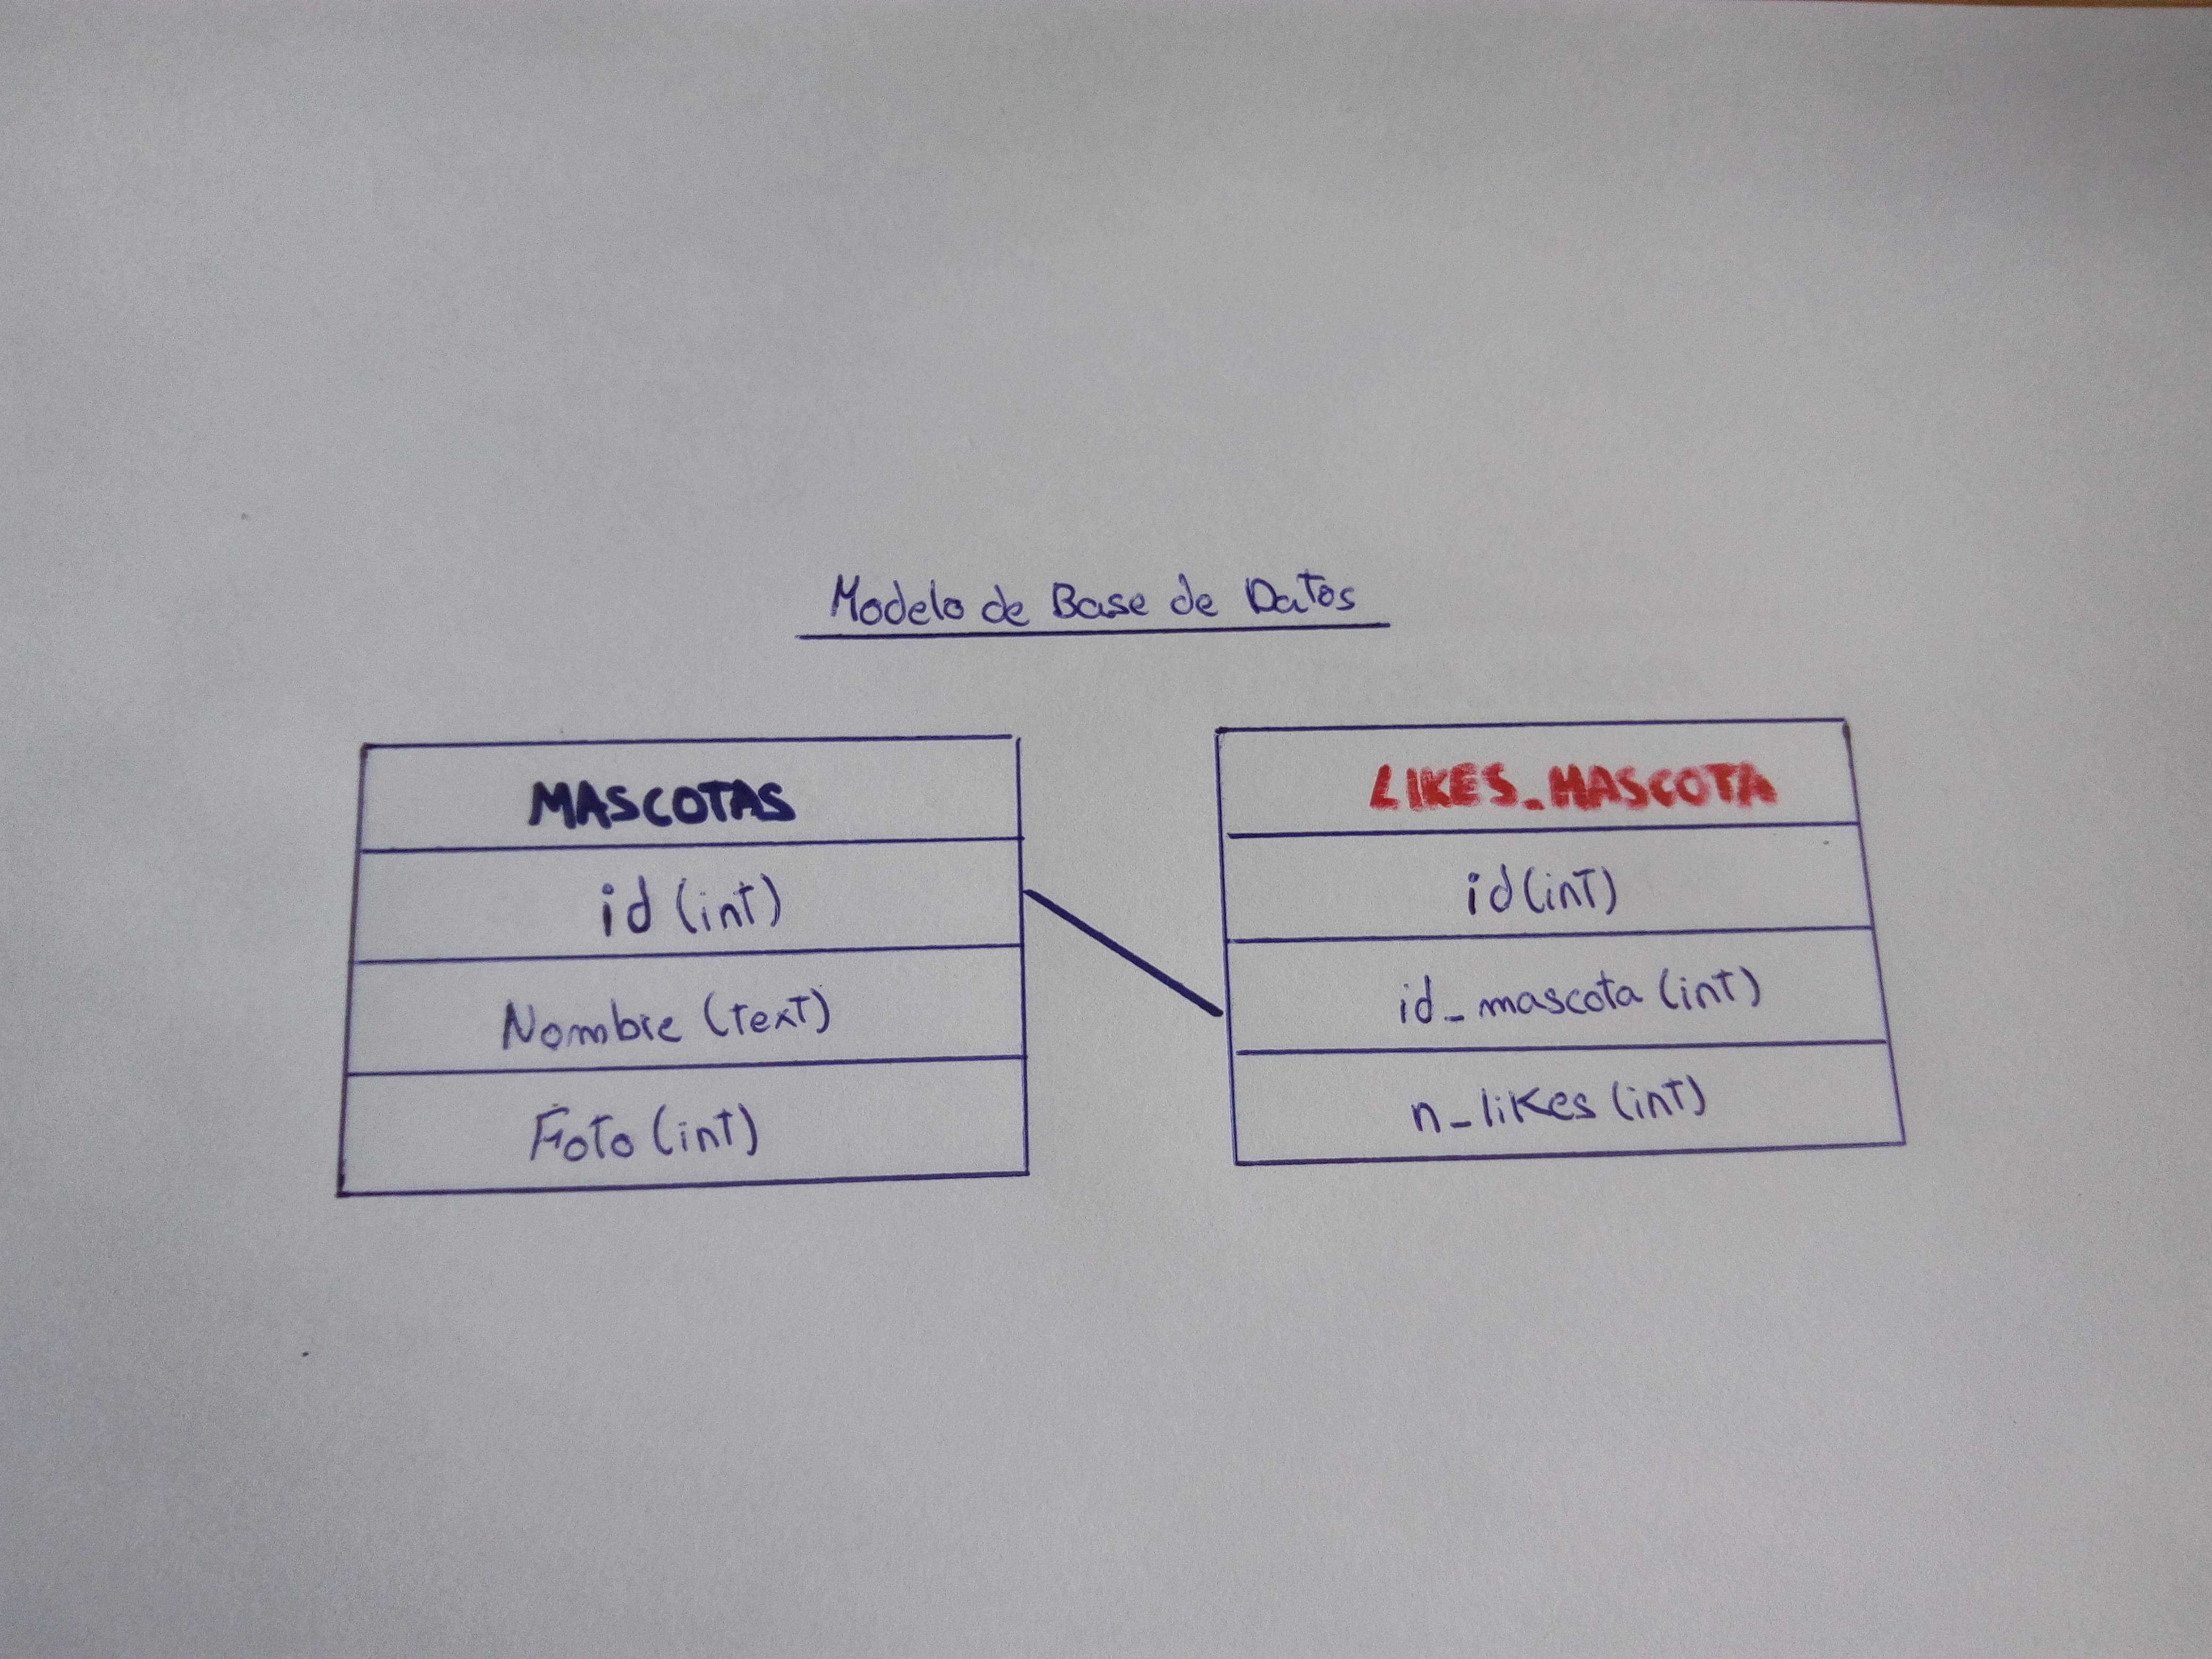 Modelo de Base de Datos
MASCOTAS
id (int)
Nombre (text)
Foto (int)
LIKES_MASCOTA
id (int)
id_mascota (int)
n_likes (int)